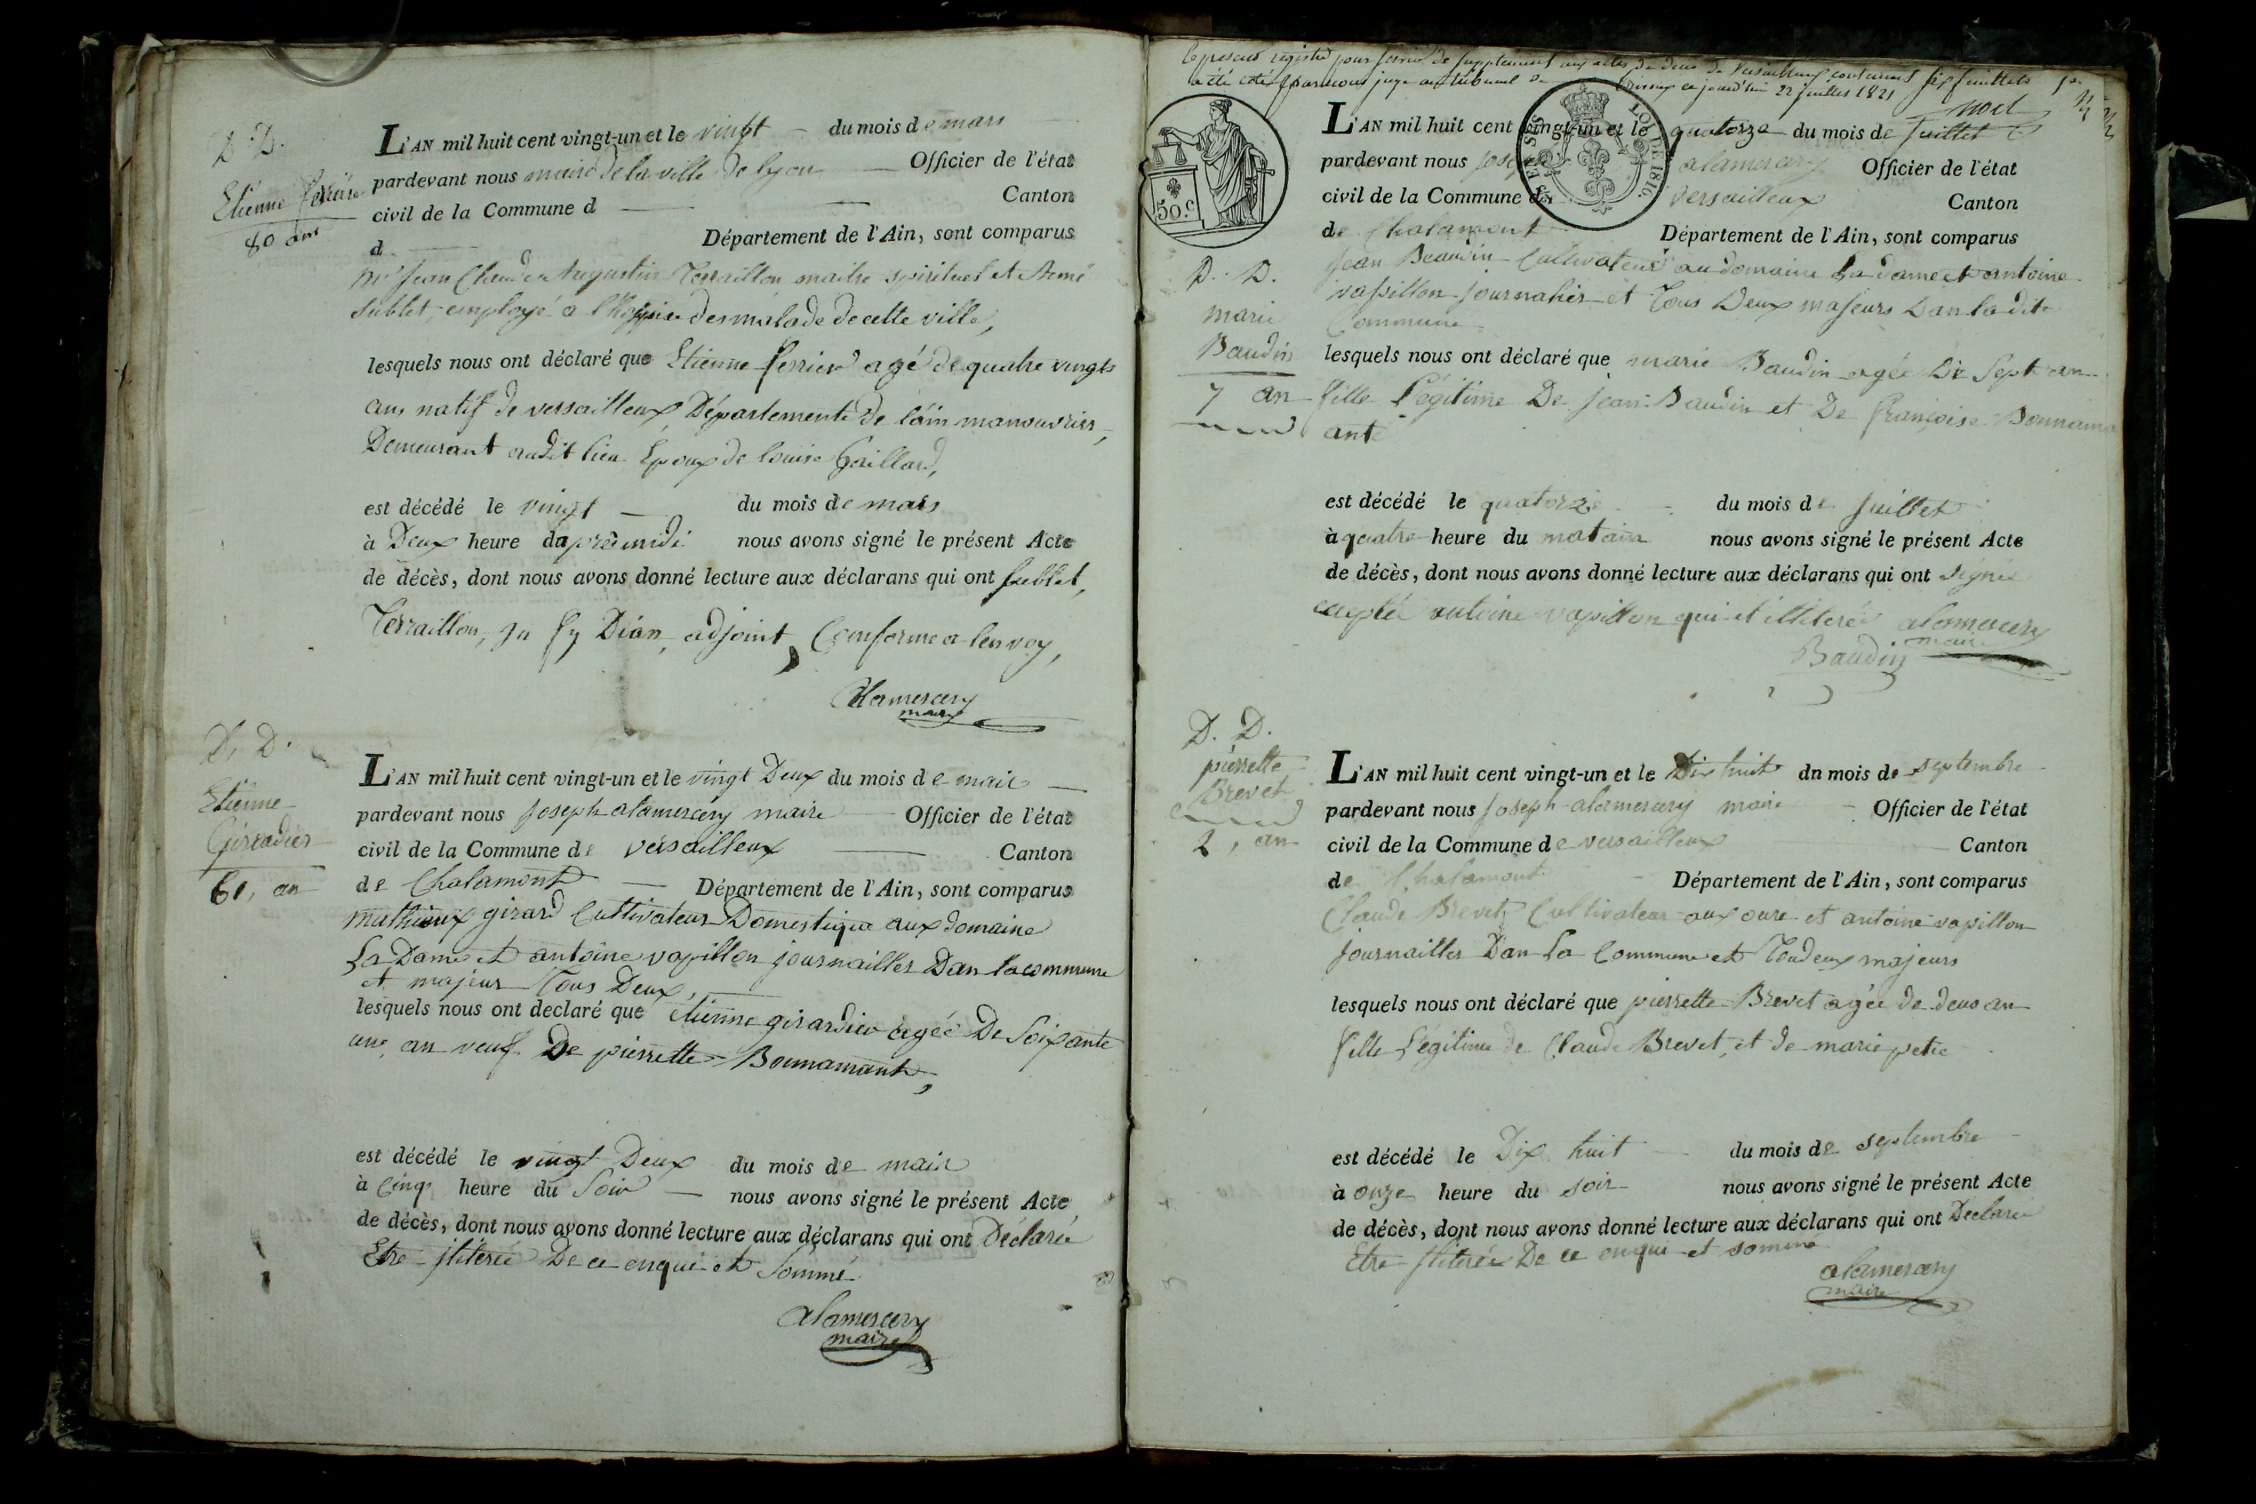 D. D.
Etienne ferrier
80 ans
L'AN mil huit cent vingt-un et le vingt — du mois de mars
pardevant nous maire de la ville de lyon — Officier de l'état
civil de la Commune d — Canton
d — Département de l'Ain, sont comparus
Mr Jean Claude Augustin Terraillon maitre spirituel et Aimé
Sublet, employé a l'hospice des malade de cette ville,
lesquels nous ont déclaré que Etienne ferrier agé de quatre vingts
ans natif de versailleux, Département de l'ain manouvrier,
Demeurant audit lieu Epoux de louise Gaillard,
est décédé le vingt — du mois de mars
à Deux heure d'aprèmidi nous avons signé le présent Acte
de décès, dont nous avons donné lecture aux déclarans qui ont Sublet,
Terraillon, Dian, adjoint, Conforme a lenvoy,
Alamercery
maire
D. D.
Etienne
Girardier
61, an
L'AN mil huit cent vingt-un et le vingt Deux du mois de mair —
pardevant nous Joseph alamercery maire — Officier de l'état
civil de la Commune de versailleux — Canton
de Chalamont — Département de l'Ain, sont comparus
mathieux girard Cultivateur Domestique aux domaine
La Dame et antoine vapillon journailler Dan la commune
et majeur Tous Deux,
lesquels nous ont declaré que etienne girardier agée De Soixante
une an veuf De pierrette Bonnamant,
est décédé le vingt Deux du mois de mair
à Cinq heure du Soir — nous avons signé le présent Acte
de décès, dont nous avons donné lecture aux déclarans qui ont Déclarée
Etre jliterée De ce enqui et Sommé
alamercery
maire
Le present registre pour servir de supplement aux actes de deces de Versailleux contenant six feuillets
a été coté par nous juge au tribunal de Trevoux ce jourd'hui 22 juillet 1821
noel
50.c
LOI DE 1816
L'AN mil huit cent vingt-un et le quatorze du mois de Juillet
pardevant nous Joseph alamercery Officier de l'état
civil de la Commune de versailleux Canton
de Chalamont Département de l'Ain, sont comparus
D. D.
marie
Baudin
7 an
Jean Beaudin Cultivateur au domaine La dame et antoine
vapillon journalier et Tous Deux majeurs Dan la dite
Commune
lesquels nous ont déclaré que marie Baudin agée De Sept an
fille Légitime De Jean Baudin et De françoise Bonnam
ant
est décédé le quatorze du mois de Juillet
à quatre heure du matain nous avons signé le présent Acte
de décès, dont nous avons donné lecture aux déclarans qui ont signée
exeptée antoine vapillon qui et illiterée alamercery
maire
Baudin
D. D.
pierrette
Brevet
2, an
L'AN mil huit cent vingt-un et le Dix huit dn mois de septembre
pardevant nous Joseph alamercery maire — Officier de l'état
civil de la Commune de versailleux Canton
de Chalamont Département de l'Ain, sont comparus
Claude Brevet Cultivateur aux oure et antoine vapillon
journailler Dan La Commune et Toudeux majeurs
lesquels nous ont déclaré que pierrette Brevet agée de deux an
fille Légitime de Claude Brevet, et de marie petie
est décédé le Dix huit du mois de septembre
à onze heure du soir nous avons signé le présent Acte
de décès, dont nous avons donné lecture aux déclarans qui ont Déclarée
Etre jliterée De ce enqui et sommé
alamercery
maire